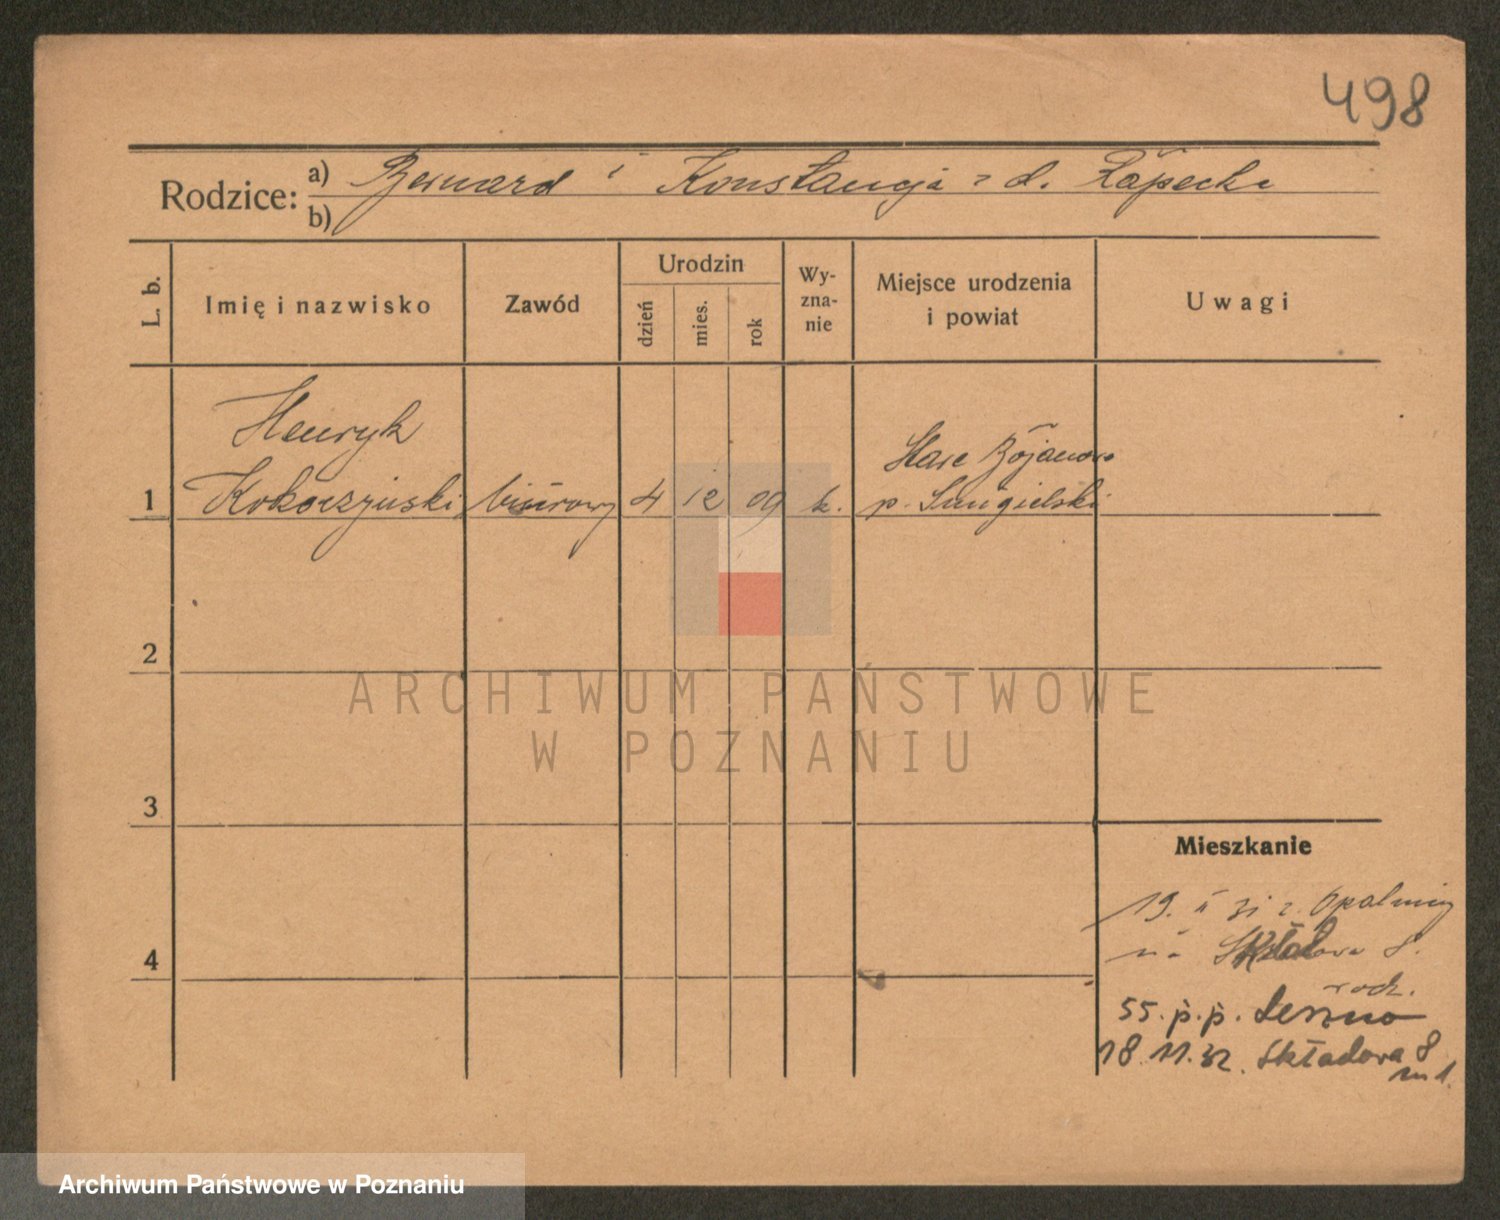 498
Rodzice: a) Bernard i Konstancja z d. Rąpecka
b)
L. b. Imię i nazwisko Zawód Urodzin dzień mies. rok Wy-zna-nie Miejsce urodzenia i powiat Uwagi
Henryk Stare Bojanowo
1 Kokoczyński biurowy 4 12 09 k. p. Śmigielski
2
ARCHIWUM PAŃSTWOWE
W POZNANIU
3
Mieszkanie
19. II 31 z. Opalenicy
4
na Składowa 8.
rodz.
55. p. p. Leszno
18. 11. 32. Składowa 8
m 1.
Archiwum Państwowe w Poznaniu